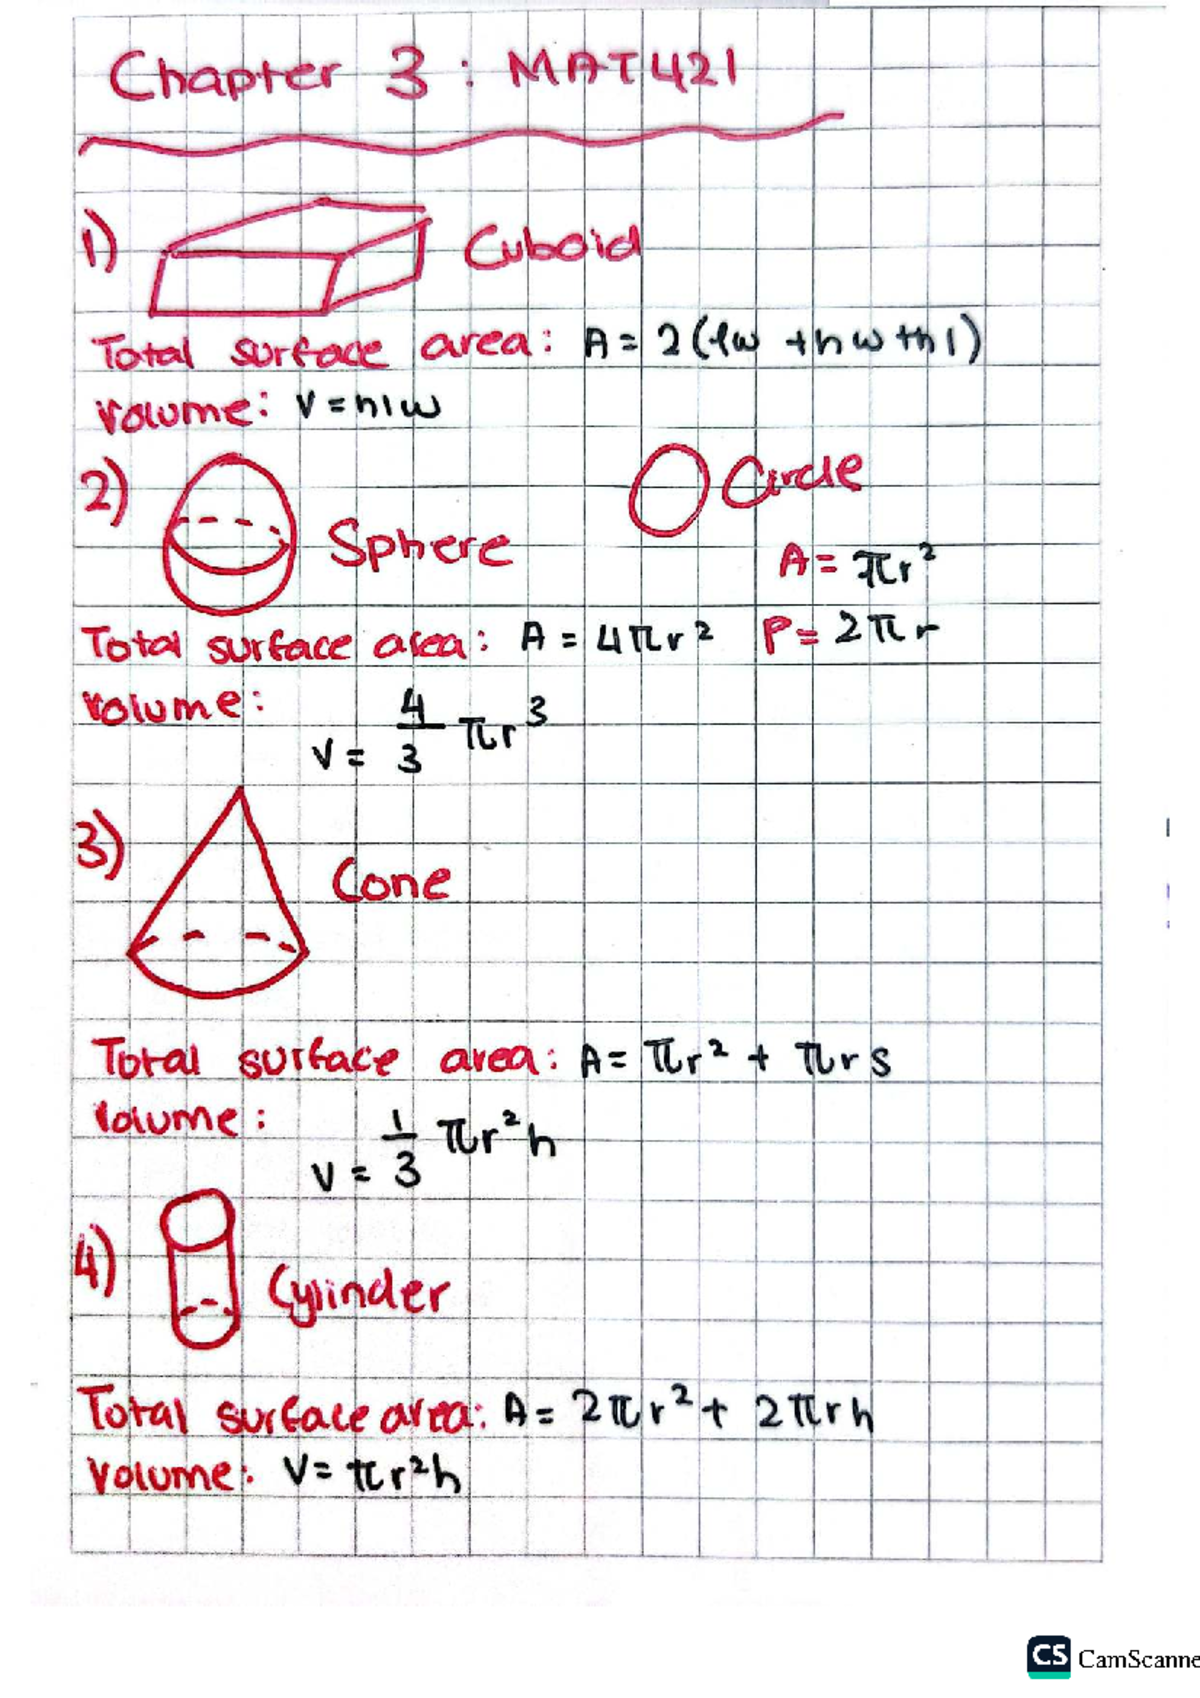 Chapter 3: MAT421
1) Cuboid
Total surface area: A = 2(lw + hw + hl)
Volume: V = hlw
2) Sphere
Circle
A = πr²
Total surface area: A = 4πr²
P = 2πr
Volume: V = 4/3 πr³
3) Cone
Total surface area: A = πr² + πrs
Volume: V = 1/3 πr²h
4) Cylinder
Total surface area: A = 2πr² + 2πrh
Volume: V = πr²h
CS CamScanne